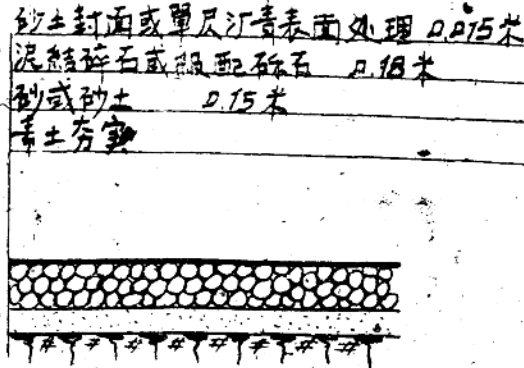 砂土封面或單尺沥青表面处理 0.015米
泥結碎石或級配砾石 0.18米
砂或砂土 0.15米
素土夯實